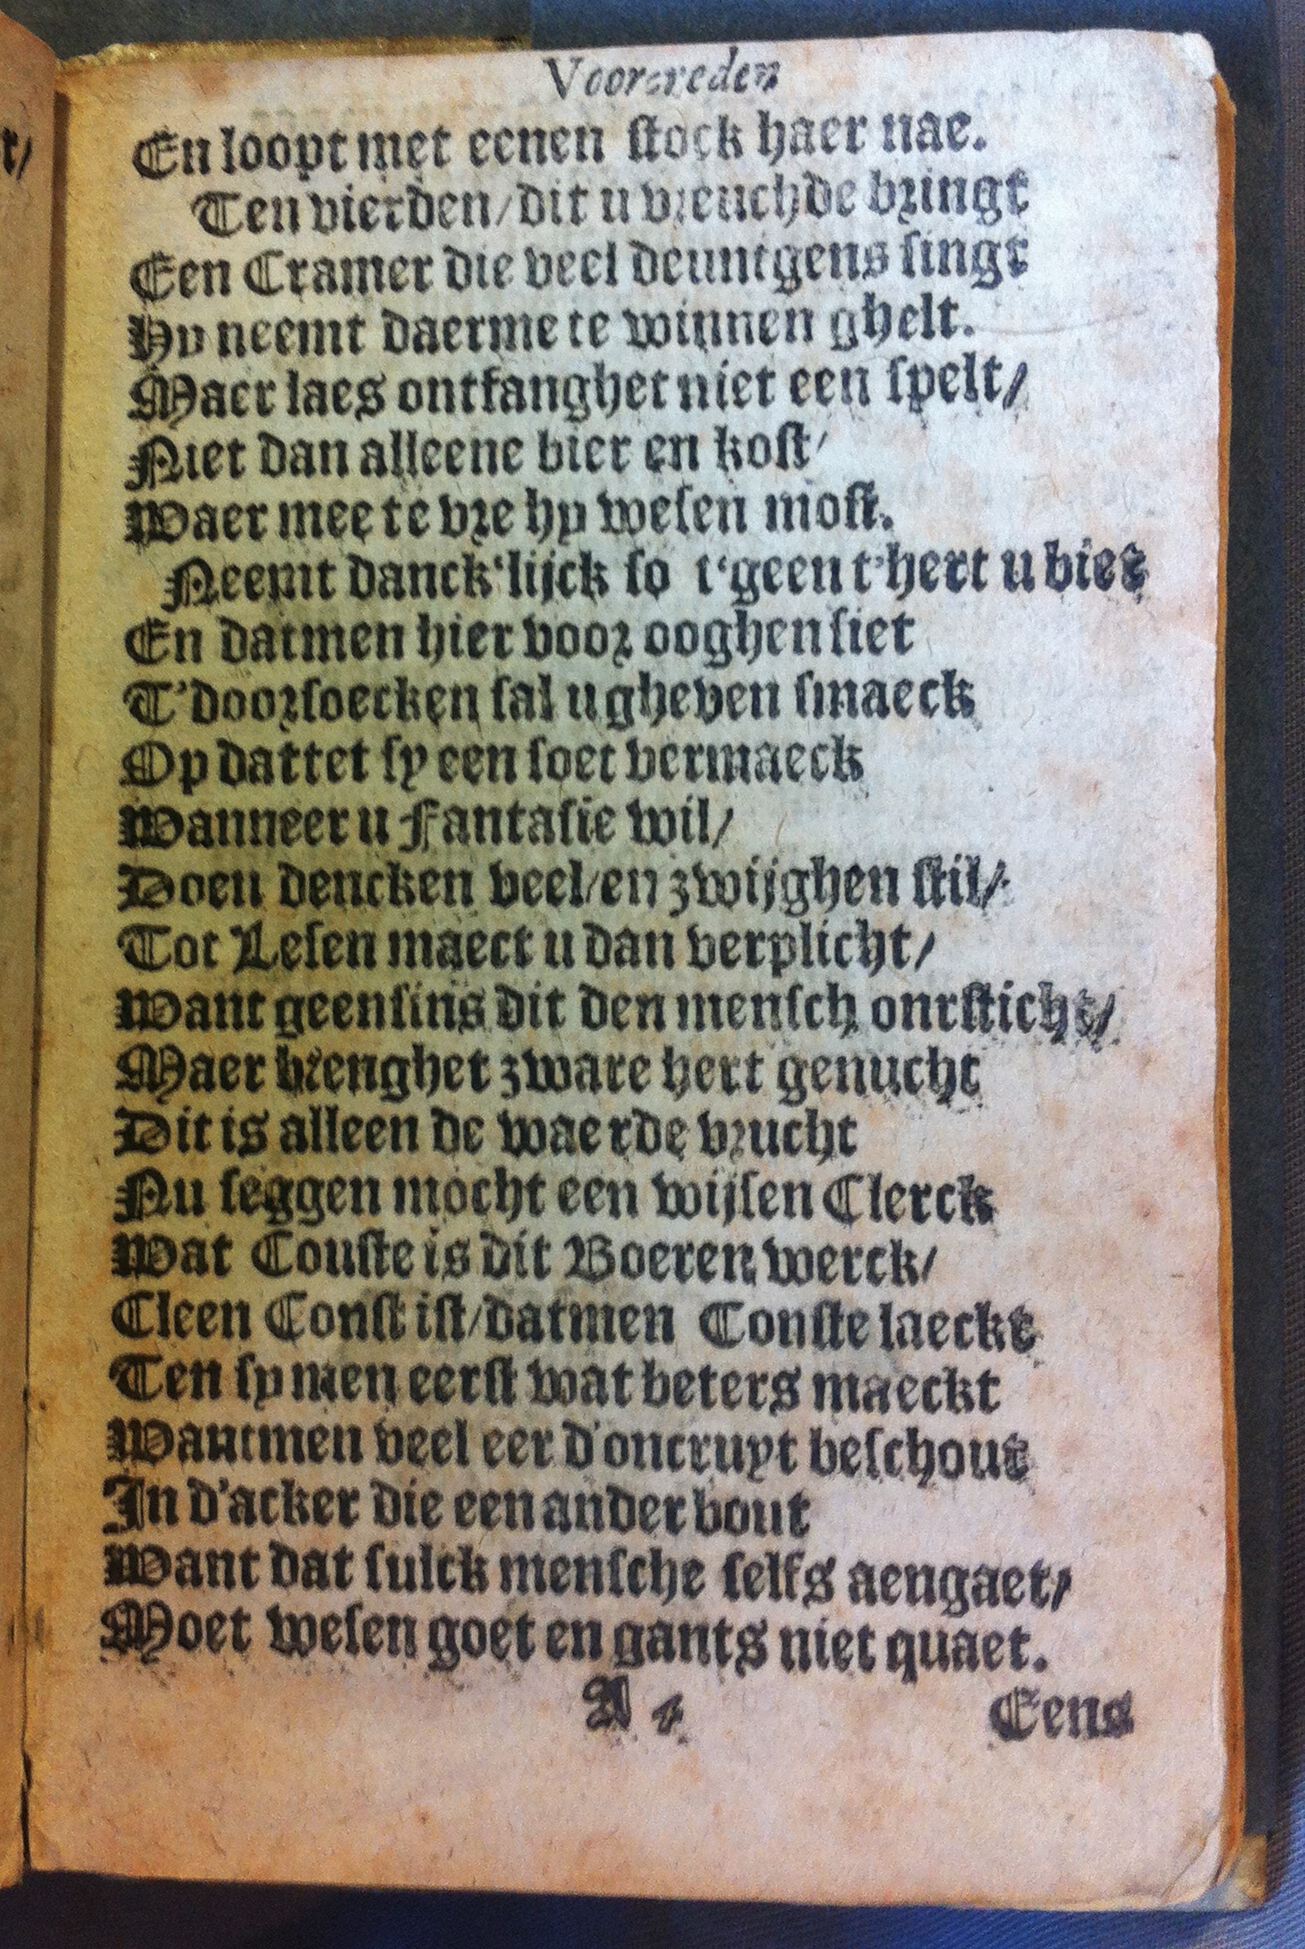 Voorreden
En loopt met eenen stock haer nae.
Ten vierden/dit u vreuchde bringt
Een Cramer die veel deuntgens singt
Hy neemt daerme te winnen ghelt.
Maer laes ontfanghet niet een spelt/
Niet dan alleene bier en kost/
Waer mee te vre hy wesen most.
Neemt danck'lijck so t'geen t'hert u biet
En datmen hier voor ooghen siet
T'doorsoecken sal u gheven smaeck
Op dattet sy een soet vermaeck
Wanneer u Fantasie wil/
Doen dencken veel/en zwijghen stil/
Tot Lesen maect u dan verplicht/
Want geensins dit den mensch ontsticht/
Maer brenghet zware hert genucht
Dit is alleen de waerde vrucht
Nu seggen mocht een wijsen Clerck
Wat Conste is dit Boeren werck/
Cleen Const ist/datmen Conste laeckt
Ten sy men eerst wat beters maeckt
Wantmen veel eer d'oncruyt beschout
In d'acker die een ander bout
Want dat sulck mensche selfs aengaet/
Moet wesen goet en gants niet quaet.
A 4 Eens
r/